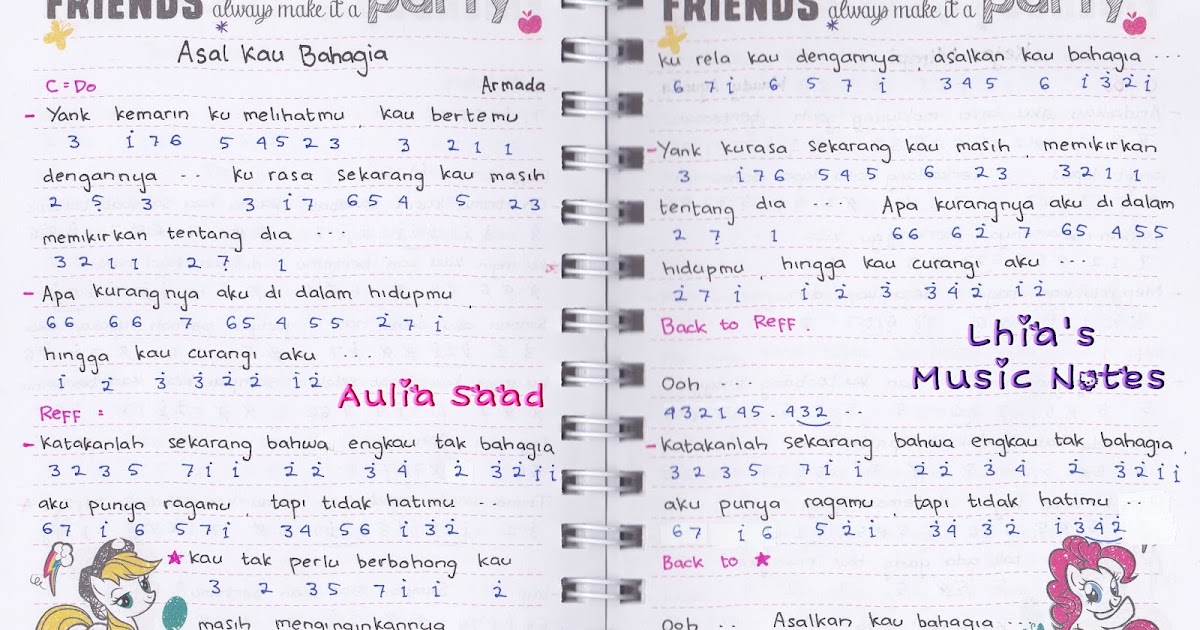 FRIENDS always make it a party
Asal Kau Bahagia
C = Do
Armada
- Yank kemarin ku melihatmu, kau bertemu
3 i̇ 7 6 5 4 5 2 3 3 2 1 1
dengannya .. ku rasa sekarang kau masih
2 5̣ 3 3 i̇ 7 6 5 4 5 2 3
memikirkan tentang dia ...
3 2 1 1 2 7̣ 1
- Apa kurangnya aku di dalam hidupmu,
6 6 6 6 7 6 5 4 5 5 2̇ 7 i̇
hingga kau curangi aku ...
i̇ 2̇ 3̇ 3̇ 2̇ 2̇ i̇ 2̇
Aulia Saad
Reff :
- Katakanlah sekarang bahwa engkau tak bahagia
3 2 3 5 7 i̇ i̇ 2̇ 2̇ 3̇ 4̇ 2̇ 3̇ 2̇ i̇ i̇
aku punya ragamu, tapi tidak hatimu ...
6 7 i̇ 6 5 7 i̇ 3 4 5 6 i̇ 3̇ 2̇
★ kau tak perlu berbohong kau
3 2 3 5 7 i̇ i̇ 2̇
masih menginginkannya
FRIENDS always make it a party
ku rela kau dengannya, asalkan kau bahagia ...
6 7 i̇ 6 5 7 i̇ 3 4 5 6 i̇ 3̇ 2̇ i̇
- Yank kurasa sekarang kau masih, memikirkan
3 i̇ 7 6 5 4 5 6 2 3 3 2 1 1
tentang dia ... Apa kurangnya aku di dalam
2 7̣ 1 6 6 6 2̇ 7 6 5 4 5 5
hidupmu, hingga kau curangi aku ...
2̇ 7 i̇ i̇ 2̇ 3̇ 3̇ 4̇ 2̇ i̇ 2̇
Back to Reff.
Lhia's
Music Notes
Ooh ....
4 3 2 1 4 5 . 4 3 2 ..
- Katakanlah sekarang bahwa engkau tak bahagia,
3 2 3 5 7 i̇ i̇ 2̇ 2̇ 3̇ 4̇ 2̇ 3̇ 2̇ i̇ i̇
aku punya ragamu tapi tidak hatimu ...
6 7 i̇ 6 5 2̇ i̇ 3̇ 4̇ 3̇ 2̇ i̇ 3̇ 4̇ 2̇
Back to ★
Ooh .. Asalkan kau bahagia ...